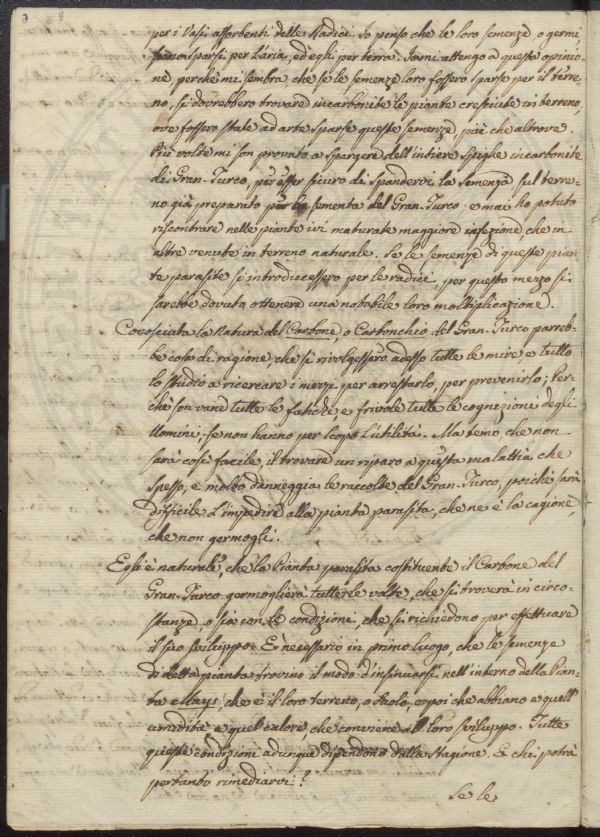 per i Vasi assorbenti delle Radici. Io penso che le loro semenze, o germi
siano sparsi per l'aria, ed egli per terra. Io mi attengo a questa opinio-
ne, perchè mi sembra, che se le semenze loro fossero sparse per il terre-
no, si dovrebbero trovare incarbonite le piante cresciute in terreno,
ove fossero state ad arte sparse queste semenze, più che altrove.
Più volte mi son provato a spargere dell'intiere Spighe incarbonite
di Gran-Turco, per esser sicuro di spandervi la semenza sul terre-
no già preparato per la sementa del Gran-Turco: e mai ho potuto
riscontrare nelle piante ivi maturate maggiore infezione, che in
altre venute in terreno naturale. Se le semenze di queste pian-
te parasite si introducessero per le radici, per questo mezzo si
sarebbe dovuta ottenere una notabile loro moltiplicazione.
Conosciuta la Natura del Carbone, o Carbonchio del Gran-Turco parreb-
be cosa di ragione, che si rivolgessero adesso tutte le mire, e tutto
lo studio a ricercare i mezzi per arrestarlo, per prevenirlo; Per-
chè son vane tutte le fatiche, e frivole tutte le cognizioni degli
Uomini, se non hanno per scopo l'utilità. Ma temo che non
sarà così facile, il trovare un riparo a questa malattia che
spesso, e molto danneggia le raccolte del Gran-Turco, poichè sarà
difficile l'impedire alla pianta parasita, che ne è la cagione,
che non germogli.
Egli è naturale, che la Pianta parasita costituente il Carbone del
Gran-Turco germoglierà tutte le volte, che si troverà in circo-
stanze, o sia con le condizioni, che si richiedono per effettuare
il suo sviluppo. È necessario in primo luogo, che le semenze
di detta pianta trovino il modo d'insinuarsi nell'interno della Pian-
ta Mays, che è il loro terreno, o suolo, e poi che abbiano a quell'
umidità, e quel calore, che conviene al loro sviluppo. Tutte
queste condizioni adunque dipendono dalla stagione. E chi potrà
pertanto rimediarvi?
Se le